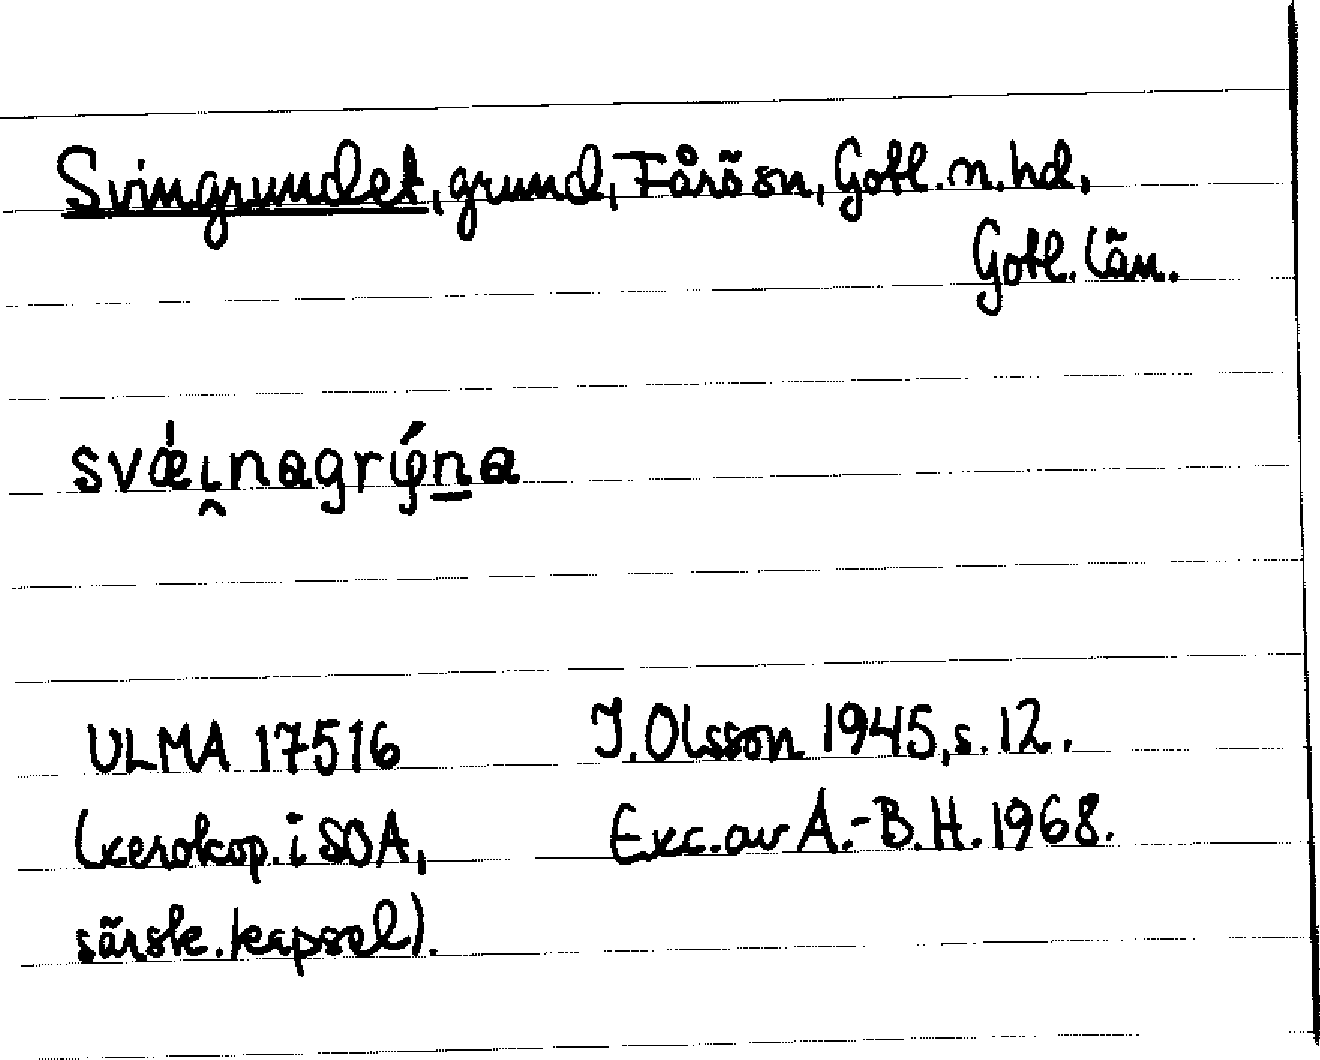 Svingrundet, grund, Fårö sn, Gotl. n. hd,
Gotl. län.
svǽi̯nagrýn̲a
ULMA 17516 J. Olsson 1945, s. 12.
(xerokop. i SOA, Exc. av A.-B.H. 1968.
särsk. kapsel).